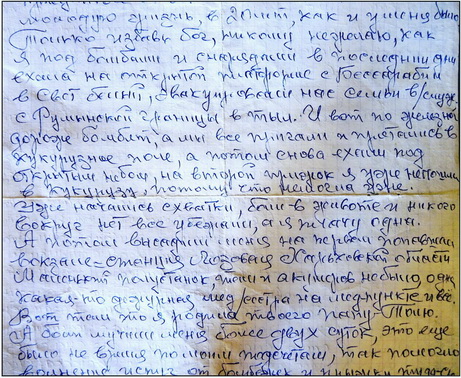 молодую жизнь, в 20 лет, как и у меня было
Только избавь бог, никому не желаю, как
я под бомбами и снарядами в последние дни
ехала на открытой платформе с Бессарабии
в Свет белый, эвакуировали нас семьи в/служ.
с Румынской границы в тыл. И вот по железной
дороге бомбят, а мы все прыгали и прятались в
кукурузное поле, а потом снова ехали под
открытым небом, на второй прыжок я уже не
в кукурузу, потому что не могла уже.
Уже начались схватки, боли в животе и никого
вокруг нет все убежали, а я плачу одна.
А потом высадили меня на первом попавшем
вокзале-станция Лозовая Харьковской области
Маленький полустанок, там и акушеров не было одна
какая-то дежурная медсестра на медпункте и всё.
Вот там то я родила твоего папу - Толю.
А боли мучили меня более двух суток, это ещё
было не время по моим подсчетам, так
волнение испуг от бомбежек и прыжки